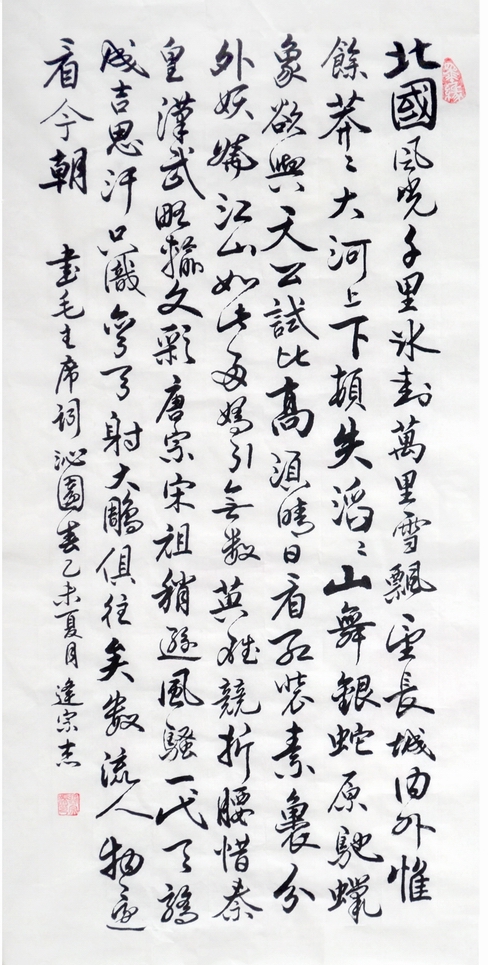 北國風光千里冰封萬里雪飄望長城内外惟
餘莽〻大河上下頓失滔〻山舞銀蛇原馳蠟
象欲與天公試比高須晴日看紅裝素裹分
外妖嬈江山如此多嬌引無數英雄競折腰惜秦
皇漢武略輸文彩唐宗宋祖稍遜風騷一代天驕
成吉思汗只識彎弓射大鵰俱往矣數流人物還
看今朝
書毛主席詞沁園春乙未夏月達宗